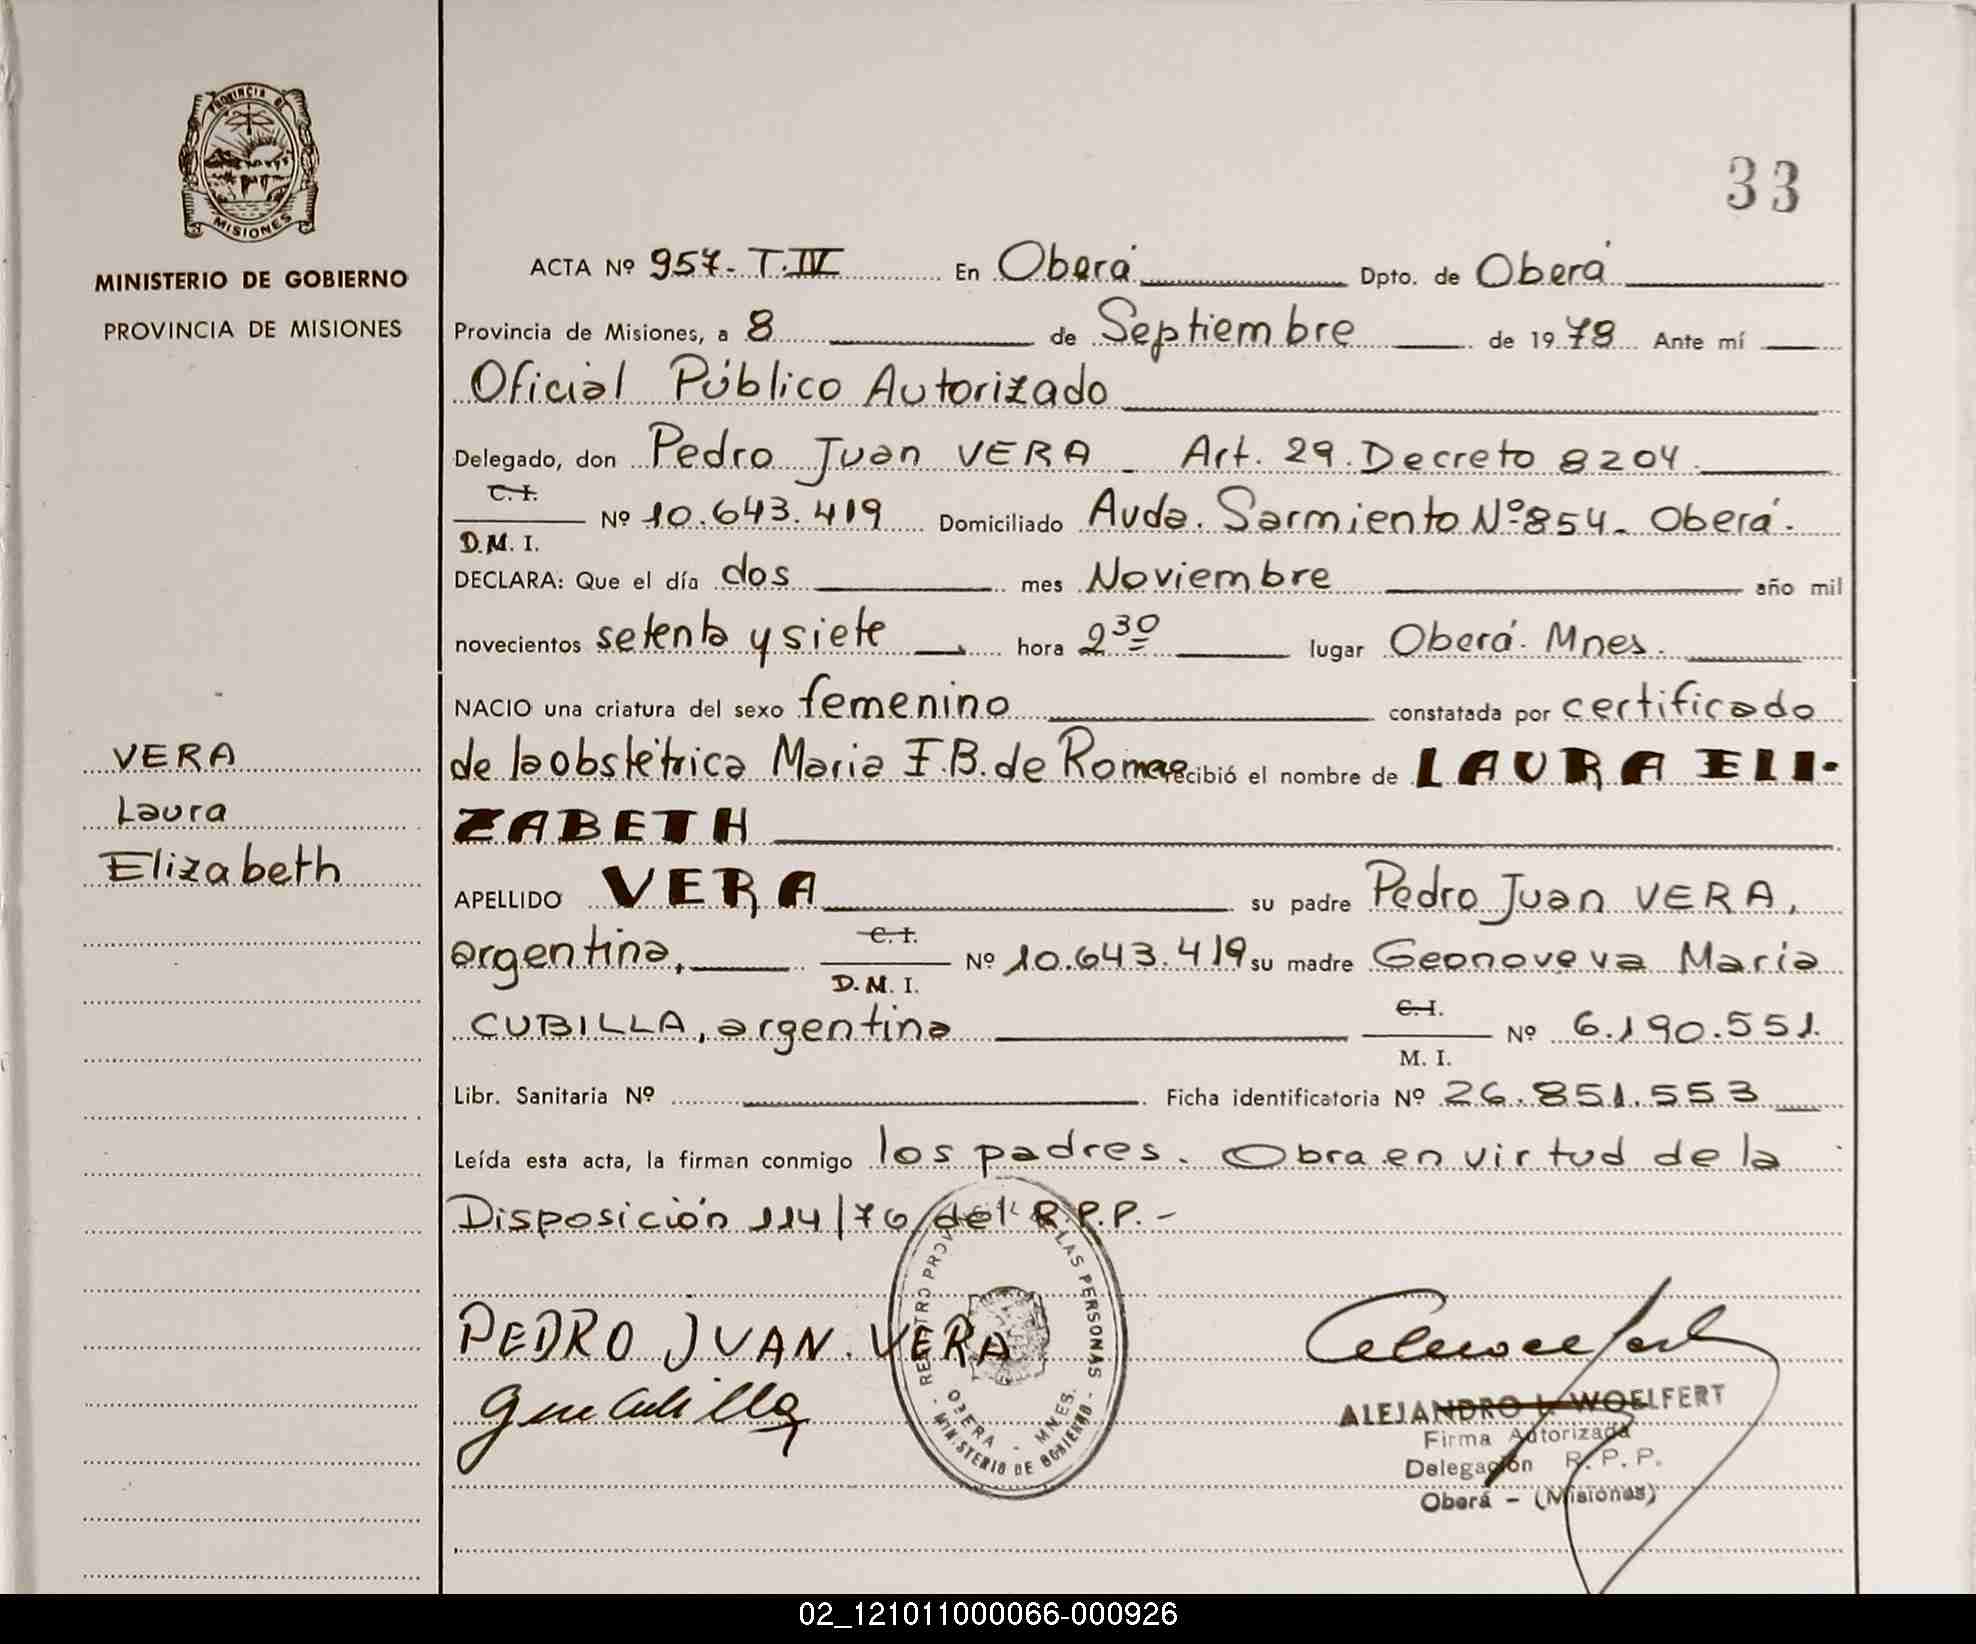 PROVINCIA DE
MISIONES
MINISTERIO DE GOBIERNO
PROVINCIA DE MISIONES
VERA
Laura
Elizabeth
33
ACTA Nº 957- T.IV En Oberá Dpto. de Oberá
Provincia de Misiones, a 8 de Septiembre de 1978 Ante mí
Oficial Público Autorizado
Delegado, don Pedro Juan VERA - Art. 29. Decreto 8204.
C.I.
Nº 10.643.419 Domiciliado Avda. Sarmiento Nº 854- Oberá.
D.M. I.
DECLARA: Que el día dos mes Noviembre año mil
novecientos setenta y siete hora 2 30 lugar Oberá. Mnes.
NACIO una criatura del sexo femenino constatada por certificado
de la obstétrica Maria F.B. de Romae recibió el nombre de LAURA ELI-
ZABETH
APELLIDO VERA su padre Pedro Juan VERA,
C.I.
argentina, Nº 10.643.419 su madre Geonoveva Maria
D.M. I.
C.I.
CUBILLA, argentina Nº 6.190.551.
M. I.
Libr. Sanitaria Nº Ficha identificatoria Nº 26.851.553
Leída esta acta, la firman conmigo los padres. Obra en virtud de la
Disposición 114/76 del R.P.P.-
PEDRO JUAN VERA
REGISTRO PROV LAS PERSONAS
OBERA - MNES.
MINISTERIO DE GOBIERNO
ALEJANDRO L. WOELFERT
Firma Autorizada
Delegación R. P. P.
Oberá - (Misiones)
02_121011000066-000926